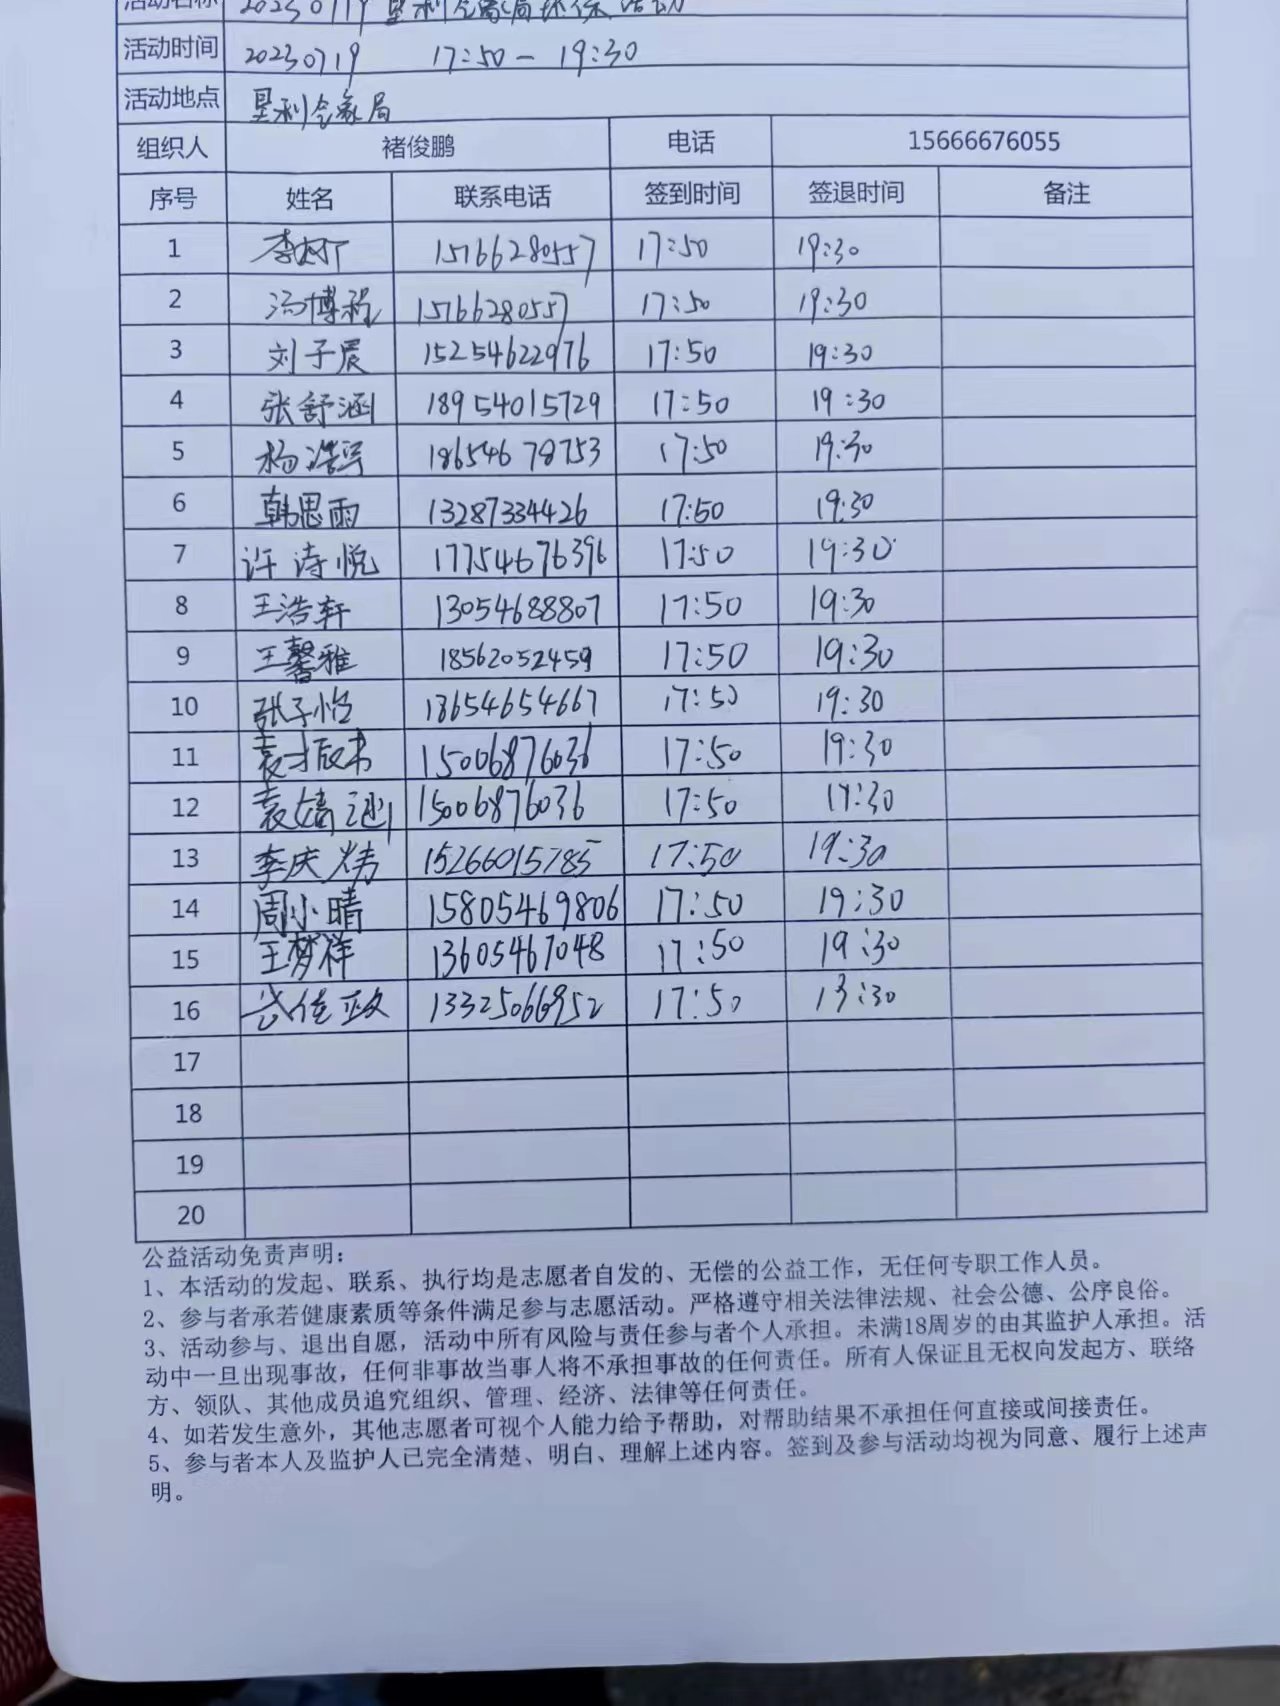 活动名称 20230719 垦利气象局环保活动
活动时间 20230719 17:50 — 19:30
活动地点 垦利气象局
组织人 褚俊鹏 电话 15666676055
序号 姓名 联系电话 签到时间 签退时间 备注
1 15766280557 17:50 19:30
2 冯博程 15766280557 17:50 19:30
3 刘子宸 15254622976 17:50 19:30
4 张舒涵 18954015729 17:50 19:30
5 杨浩宇 18654678753 17:50 19:30
6 韩思雨 13287334426 17:50 19:30
7 许诗悦 17754676396 17:50 19:30
8 王浩轩 13054688807 17:50 19:30
9 王馨雅 18562052459 17:50 19:30
10 张子怡 18654654667 17:50 19:30
11 15006876036 17:50 19:30
12 袁婧涵 15006876036 17:50 19:30
13 李庆炜 15266015785 17:50 19:30
14 周小晴 15805469806 17:50 19:30
15 王梦祥 13605467048 17:50 19:30
16 13325066952 17:50 19:30
17
18
19
20
公益活动免责声明：
1、本活动的发起、联系、执行均是志愿者自发的、无偿的公益工作，无任何专职工作人员。
2、参与者承若健康素质等条件满足参与志愿活动。严格遵守相关法律法规、社会公德、公序良俗。
3、活动参与、退出自愿，活动中所有风险与责任参与者个人承担。未满18周岁的由其监护人承担。活
动中一旦出现事故，任何非事故当事人将不承担事故的任何责任。所有人保证且无权向发起方、联络
方、领队、其他成员追究组织、管理、经济、法律等任何责任。
4、如若发生意外，其他志愿者可视个人能力给予帮助，对帮助结果不承担任何直接或间接责任。
5、参与者本人及监护人已完全清楚、明白、理解上述内容。签到及参与活动均视为同意、履行上述声
明。